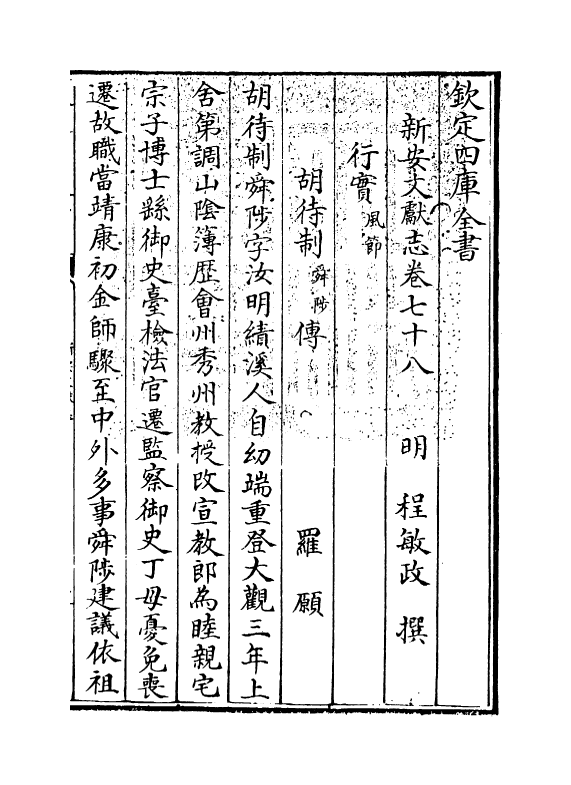 欽定四庫全書
新安文獻志卷七十八　明　程敏政　撰
行實風節
胡待制舜陟傳　羅願
胡待制舜陟字汝明績溪人自幼端重登大觀三年上
舍第調山陰簿歴會州秀州教授改宣教郎為睦親宅
宗子博士繇御史臺檢法官遷監察御史丁母憂免喪
遷故職當靖康初金師驟至中外多事舜陟建議依祖